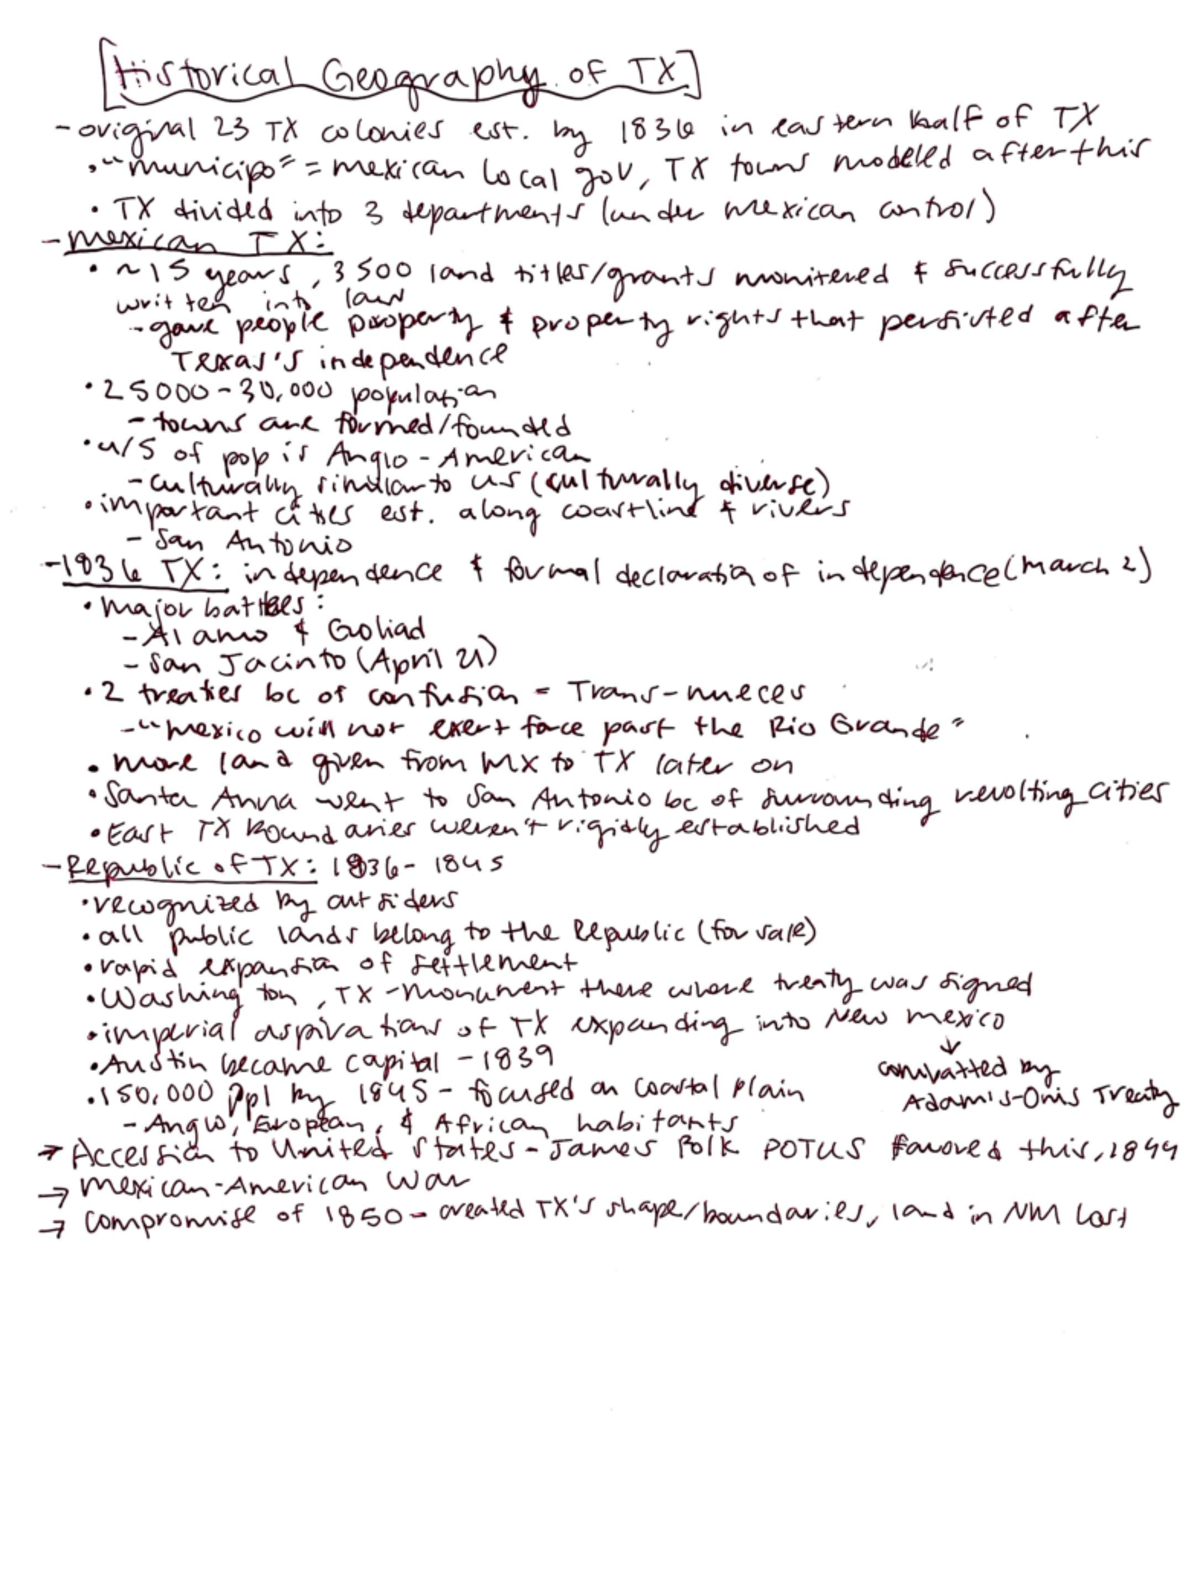 [Historical Geography of TX]
- original 23 TX colonies est. by 1836 in eastern half of TX
• "municipo" = mexican local gov, TX towns modeled after this
• TX divided into 3 departments (under mexican control)
- mexican TX:
• ~15 years, 3500 land titles/grants monitered & successfully
written into law
- gave people property & property rights that persisted after
Texas's independence
• 25000-30,000 population
- towns are formed/founded
• 4/5 of pop is Anglo-American
- culturally similar to US (culturally diverse)
• important cities est. along coastline & rivers
- San Antonio
- 1836 TX: independence & formal declaration of independence (March 2)
• major battles:
- Alamo & Goliad
- San Jacinto (April 21)
• 2 treaties bc of confusion = Trans-nueces
- "mexico will not exert force past the Rio Grande"
• more land given from MX to TX later on
• Santa Anna went to San Antonio bc of surrounding revolting cities
• East TX boundaries weren't rigidly established
- Republic of TX: 1836-1845
• recognized by outsiders
• all public lands belong to the Republic (for sale)
• rapid expansion of settlement
• Washington, TX - monument there where treaty was signed
• imperial aspirations of TX expanding into New mexico
↓
• Austin became capital - 1839
combatted by
Adams-Onis Treaty
• 150,000 ppl by 1845 - focused on coastal plain
- Anglo, European, & African habitants
→ Accession to United States - James Polk POTUS favored this, 1844
→ mexican-American War
→ compromise of 1850 - created TX's shape/boundaries, land in NM lost